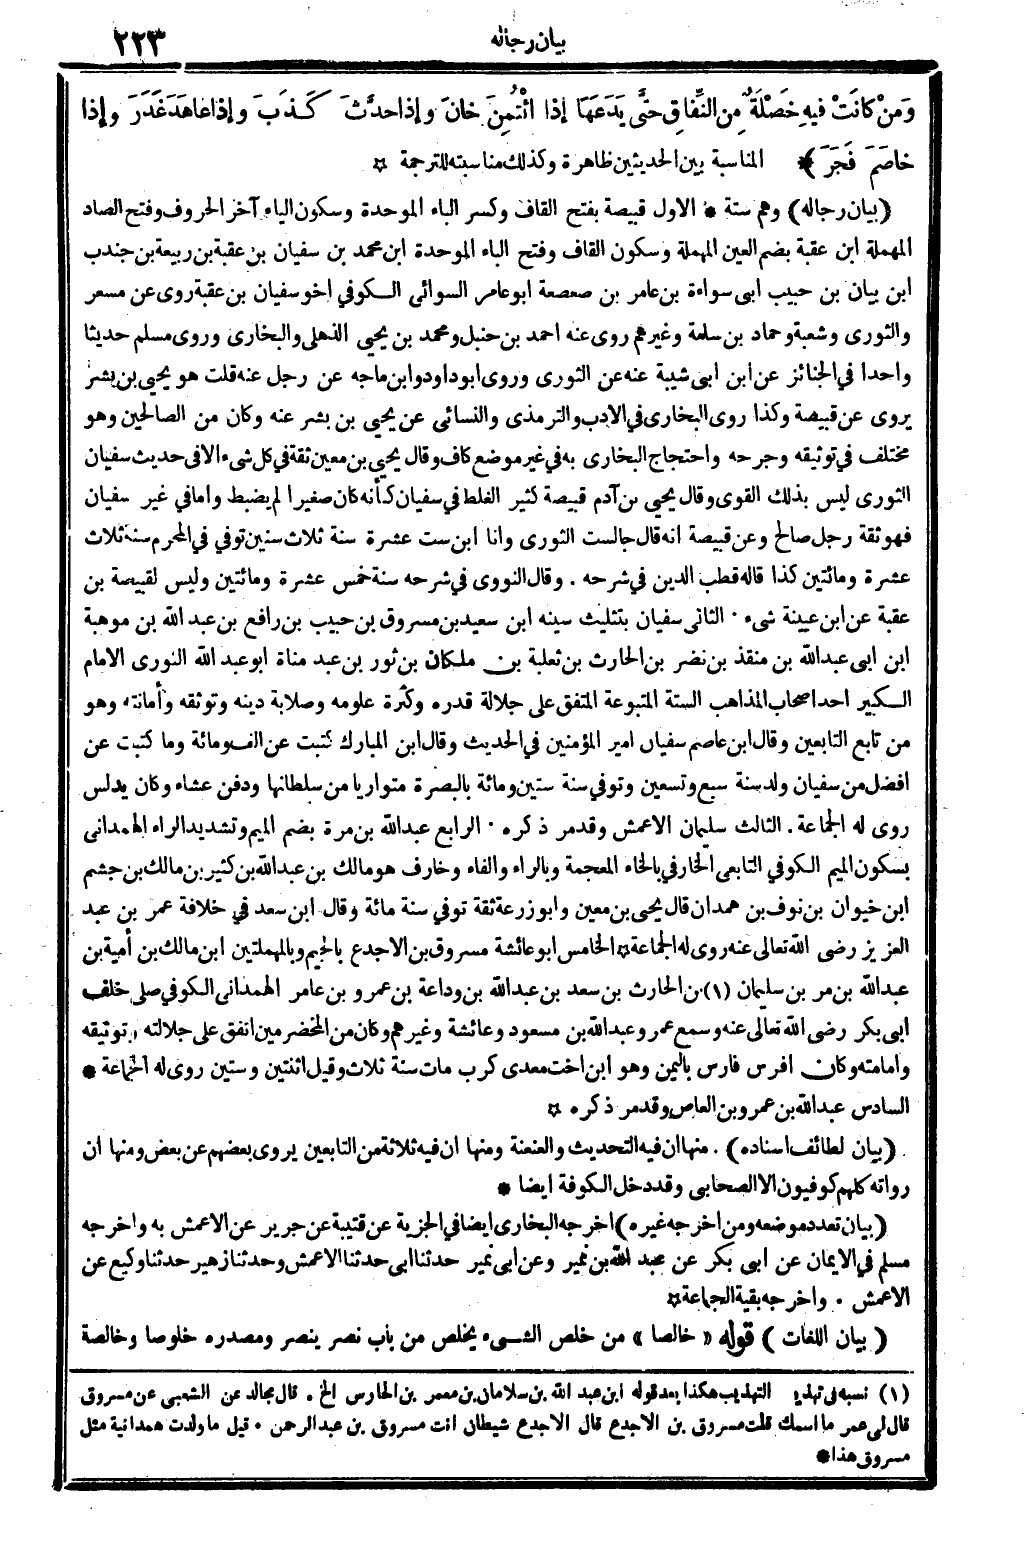 بيان رجاله
٢٢٣
وَمَنْ كانَتْ فِيهِ خَصْلَةٌ مِنَ النِّفاقِ حتَّى يَدَعَهَا إذَا ائْتُمِنَ خانَ وإذا حدَّثَ كَذَبَ وإذا عاهَدَ غَدَرَ وإذا
خاصَمَ فَجَرَ ﴾ * المناسبة بين الحديثين ظاهرة وكذلك مناسبته للترجمة ☆
(بيان رجاله) وهم ستة * الاول قبيصة بفتح القاف وكسر الباء الموحدة وسكون الياء آخر الحروف وفتح الصاد
المهملة ابن عقبة بضم العين المهملة وسكون القاف وفتح الباء الموحدة ابن محمد بن سفيان بن عقبة بن ربيعة بن جندب
ابن بيان بن حبيب ابى سواءة بن عامر بن صعصعة ابو عامر السوائى الكوفي اخو سفيان بن عقبة روى عن مسعر
والثورى وشعبة وحماد بن سلمة وغيرهم روى عنه احمد بن حنبل ومحمد بن يحيى الذهلى والبخارى وروى مسلم حديثا
واحدا في الجنائز عن ابن ابى شيبة عنه عن الثورى وروى ابو داود وابن ماجه عن رجل عنه قلت هو يحيى بن بشر
يروى عن قبيصة وكذا روى البخارى في الادب والترمذى والنسائى عن يحيى بن بشر عنه وكان من الصالحين وهو
مختلف في توثيقه وجرحه واحتجاج البخارى به في غير موضع كاف وقال يحيى بن معين ثقة في كل شىء الا في حديث سفيان
الثورى ليس بذلك القوى وقال يحيى بن آدم قبيصة كثير الغلط في سفيان كأنه كان صغيرا لم يضبط واما في غير سفيان
فهو ثقة رجل صالح وعن قبيصة انه قال جالست الثورى وانا ابن ست عشرة سنة ثلاث سنين توفي في المحرم سنة ثلاث
عشرة ومائتين كذا قاله قطب الدين في شرحه . وقال النووى في شرحه سنة خمس عشرة ومائتين وليس لقبيصة بن
عقبة عن ابن عيينة شىء . الثانى سفيان بتثليث سينه ابن سعيد بن مسروق بن حبيب بن رافع بن عبد الله بن موهبة
ابن ابى عبدالله بن منقذ بن نضر بن الحارث بن ثعلبة بن ملكان بن ثور بن عبد مناة ابو عبد الله الثورى الامام
الكبير احد اصحاب المذاهب الستة المتبوعة المتفق على جلالة قدره وكثرة علومه وصلابة دينه وتوثقه وأمانته وهو
من تابع التابعين وقال ابن عاصم سفيان امير المؤمنين في الحديث وقال ابن المبارك كتبت عن الف ومائة وما كتبت عن
افضل من سفيان ولد سنة سبع وتسعين وتوفي سنة ستين ومائة بالبصرة متواريا من سلطانها ودفن عشاء وكان يدلس
روى له الجماعة . الثالث سليمان الاعمش وقد مر ذكره . الرابع عبدالله بن مرة بضم الميم وتشديد الراء الهمدانى
بسكون الميم الكوفي التابعى الخارفي بالخاء المعجمة وبالراء والفاء وخارف هو مالك بن عبدالله بن كثير بن مالك بن جشم
ابن خيوان بن نوف بن همدان قال يحيى بن معين وابو زرعة ثقة توفي سنة مائة وقال ابن سعد في خلافة عمر بن عبد
العزيز رضى الله تعالى عنه روى له الجماعة ☆ الخامس ابو عائشة مسروق بن الاجدع بالجيم وبالمهملتين ابن مالك بن أمية بن
عبدالله بن مر بن سليمان (١) بن الحارث بن سعد بن عبدالله بن وداعة بن عمرو بن عامر الهمدانى الكوفي صلى خلف
ابى بكر رضى الله تعالى عنه وسمع عمر وعبدالله بن مسعود وعائشة وغيرهم وكان من المخضرمين اتفق على جلالته وتوثيقه
وامامته وكان افرس فارس باليمن وهو ابن اخت معدى كرب مات سنة ثلاث وقيل اثنتين وستين روى له الجماعة *
السادس عبدالله بن عمرو بن العاص وقد مر ذكره ☆
(بيان لطائف اسناده) . منها ان فيه التحديث والعنعنة ومنها ان فيه ثلاثة من التابعين يروى بعضهم عن بعض ومنها ان
رواته كلهم كوفيون الا الصحابى وقد دخل الكوفة ايضا *
(بيان تعدد موضعه ومن اخرجه غيره) اخرجه البخارى ايضا في الجزية عن قتيبة عن جرير عن الاعمش به واخرجه
مسلم في الايمان عن ابى بكر عن عبد الله بن نمير وعن ابى نمير حدثنا ابى حدثنا الاعمش وحدثنا زهير حدثنا وكيع عن
الاعمش . واخرجه بقية الجماعة ☆
(بيان اللغات) قوله « خالصا » من خلص الشىء يخلص من باب نصر ينصر ومصدره خلوصا وخالصة
(١) نسبه في تهذيب التهذيب هكذا بعد قوله ابن عبد الله بن سلامان بن معمر بن الحارس الخ . قال مجالد عن الشعبى عن مسروق
قال لى عمر ما اسمك قلت مسروق بن الاجدع قال الاجدع شيطان انت مسروق بن عبد الرحمن . قيل ما ولدت همدانية مثل
مسروق هذا *